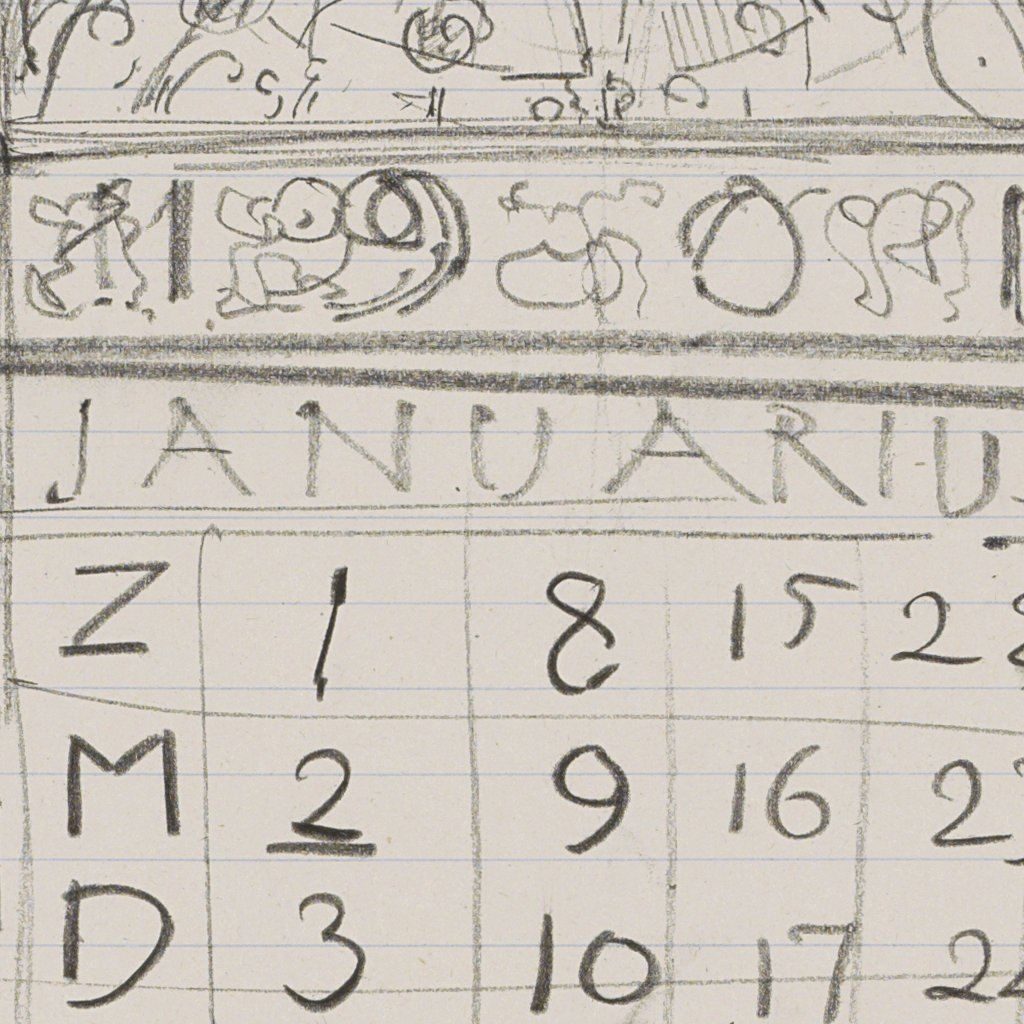 1 9 0
JANUARIU
Z 1 8 15 22
M 2 9 16 2
D 3 10 17 24